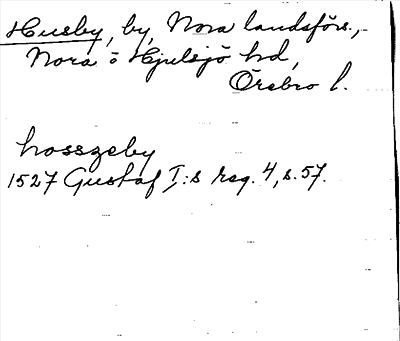 Husby, by, Nora landsförs.,
Nora o Hjulsjö hd,
Örebro l.
hosszeby
1527 Gustaf I:s reg. 4, s. 57.